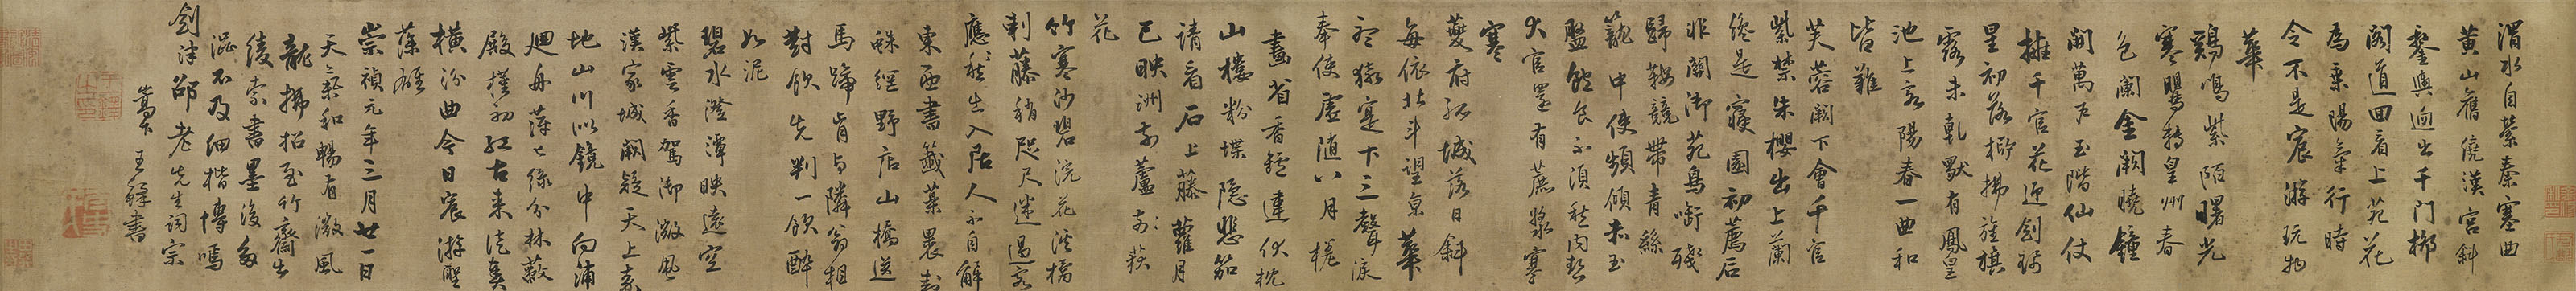 渭水自縈秦塞曲
黄山舊繞漢宫斜
鑾輿迥出千門柳
閣道回看上苑花
為乗陽氣行時
令不是宸游玩物
華
鷄鳴紫陌曙光
寒鶯囀皇州春
色闌金闕曉鐘
開萬戶玉階仙仗
擁千官花迎劍珮
星初落柳拂旌旗
露未乾獨有鳳皇
池上客陽春一曲和
皆難
芙蓉闕下會千官
紫禁朱櫻出上蘭
纔是寢園初薦后
非關御苑鳥啣殘
歸鞍競帶青絲
籠中使頻傾赤玉
盤飽食不須愁内熱
大官還有蔗漿寒
寒
夔府孤城落日斜
每依北斗望京華
聽猿寔下三聲淚
奉使虛隨八月槎
畫省香鑪違伏枕
山樓粉堞隱悲笳
請看石上藤蘿月
已映洲前蘆荻
花
竹寒沙碧浣花溪橋
刺藤梢咫尺迷過客
應愁出入居人不自解
東西書籤藥裹封
蛛網野店山橋送
馬蹄肯与隣翁相
對飲先判一飲醉
如泥
碧水澄潭映遠空
紫雲香駕御微風
漢家城闕疑天上秦
地山川似鏡中向浦
迴舟萍已綠分林蔽
殿槿初紅古来徒羨
横汾曲今日宸游聖
藻雄
崇禎元年三月廿一日
天氣和暢有微風
龍拂招至竹齋出
綾索書墨後多
澀不及細楷
劍津邵老先生詞宗
嵩下王鐸書